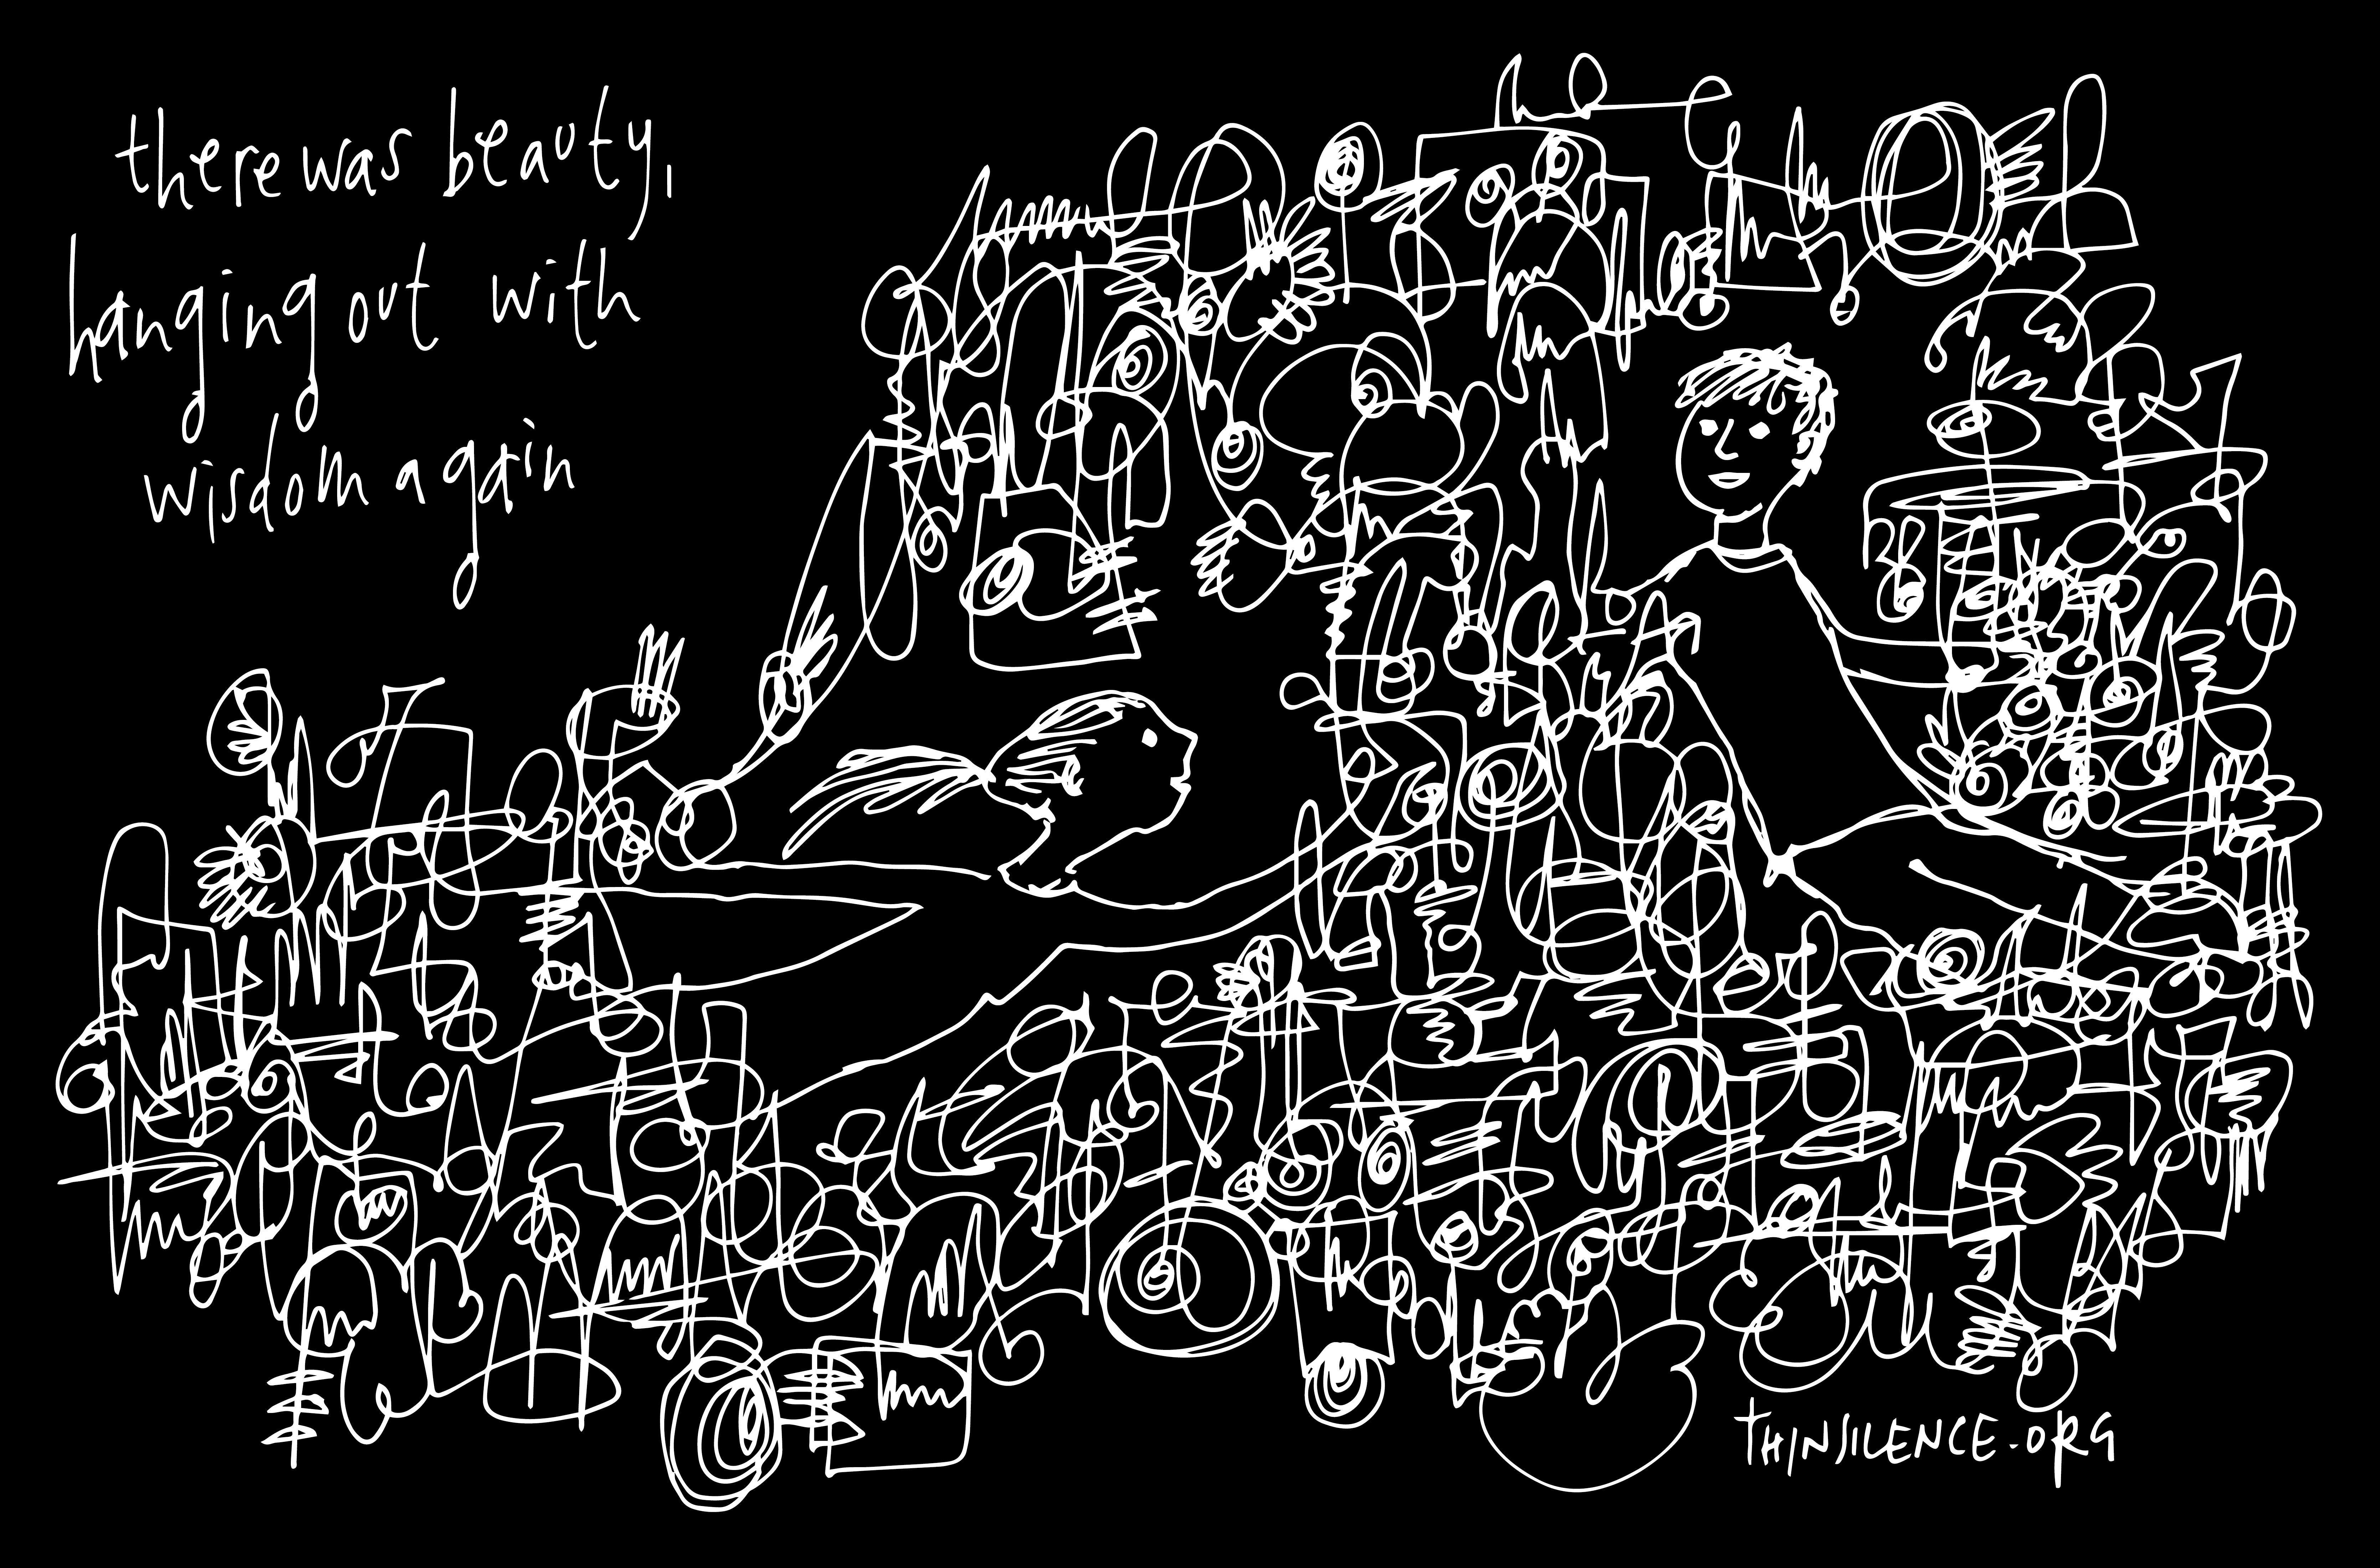 there was beauty,
hanging out with
wisdom again
THINSILENCE.ORG